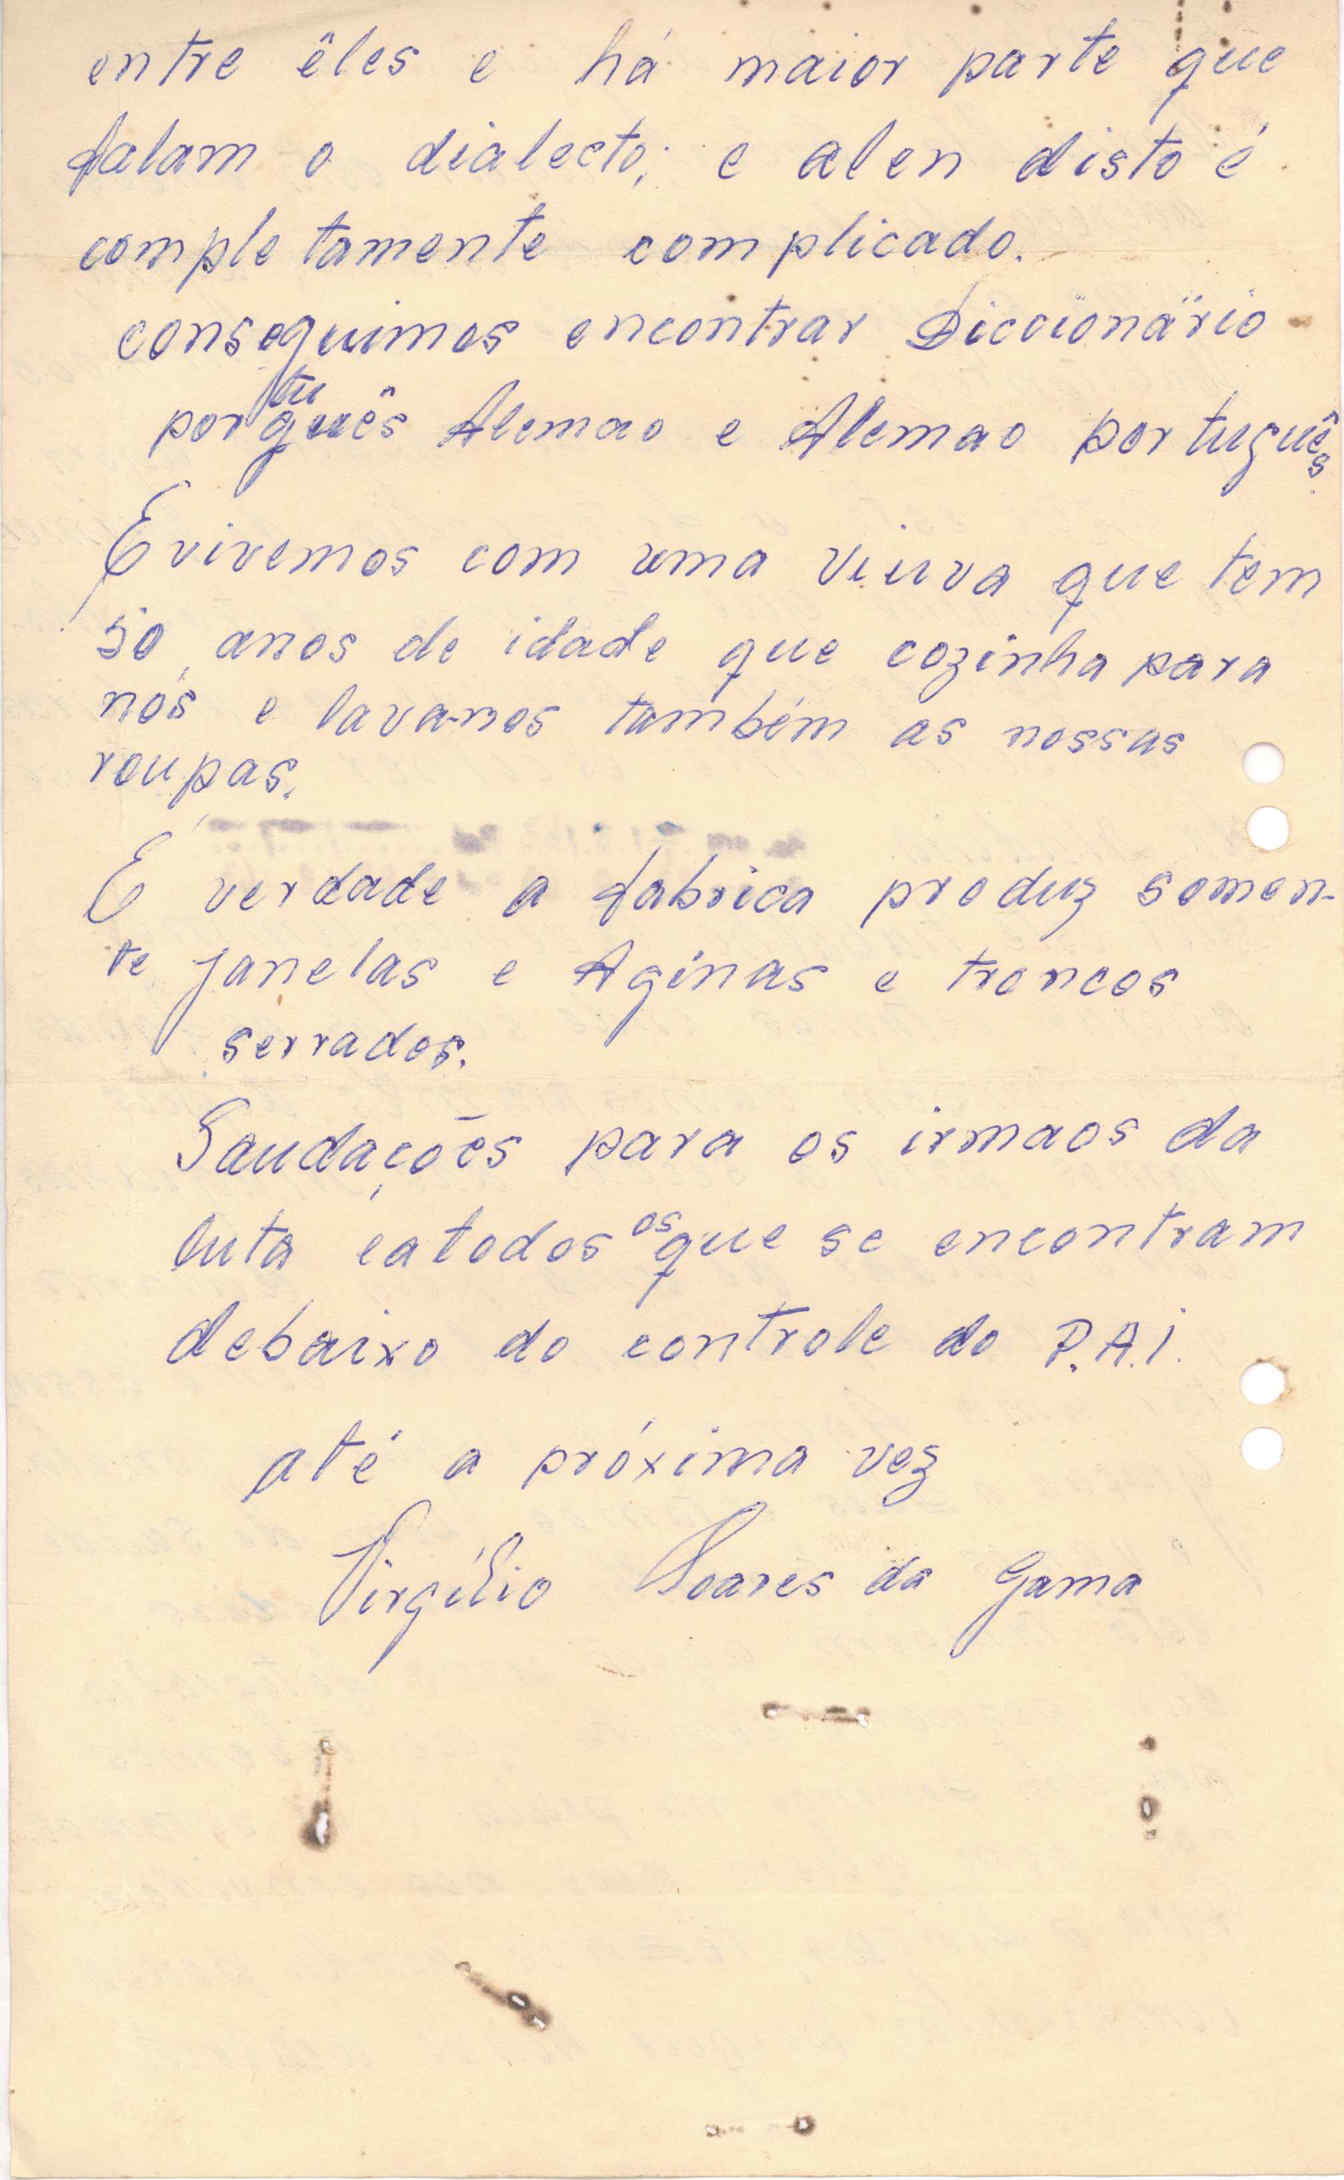 entre êles e há maior parte que
falam o dialecto; e alen disto é
completamente complicado.
conseguimos encontrar Diccionärio
português Alemao e Alemao português.
E vivemos com uma viuva que tem
50 anos de idade que cozinha para
nós e lava-nos também as nossas
roupas.
E verdade a fabrica produz somen-
te janelas e Aginas e troncos
serrados.
Saudações para os irmaos da
luta e a todos os que se encontram
debaixo do controle do P.A.I.
até a próxima vez
Virgílio Soares da Gama